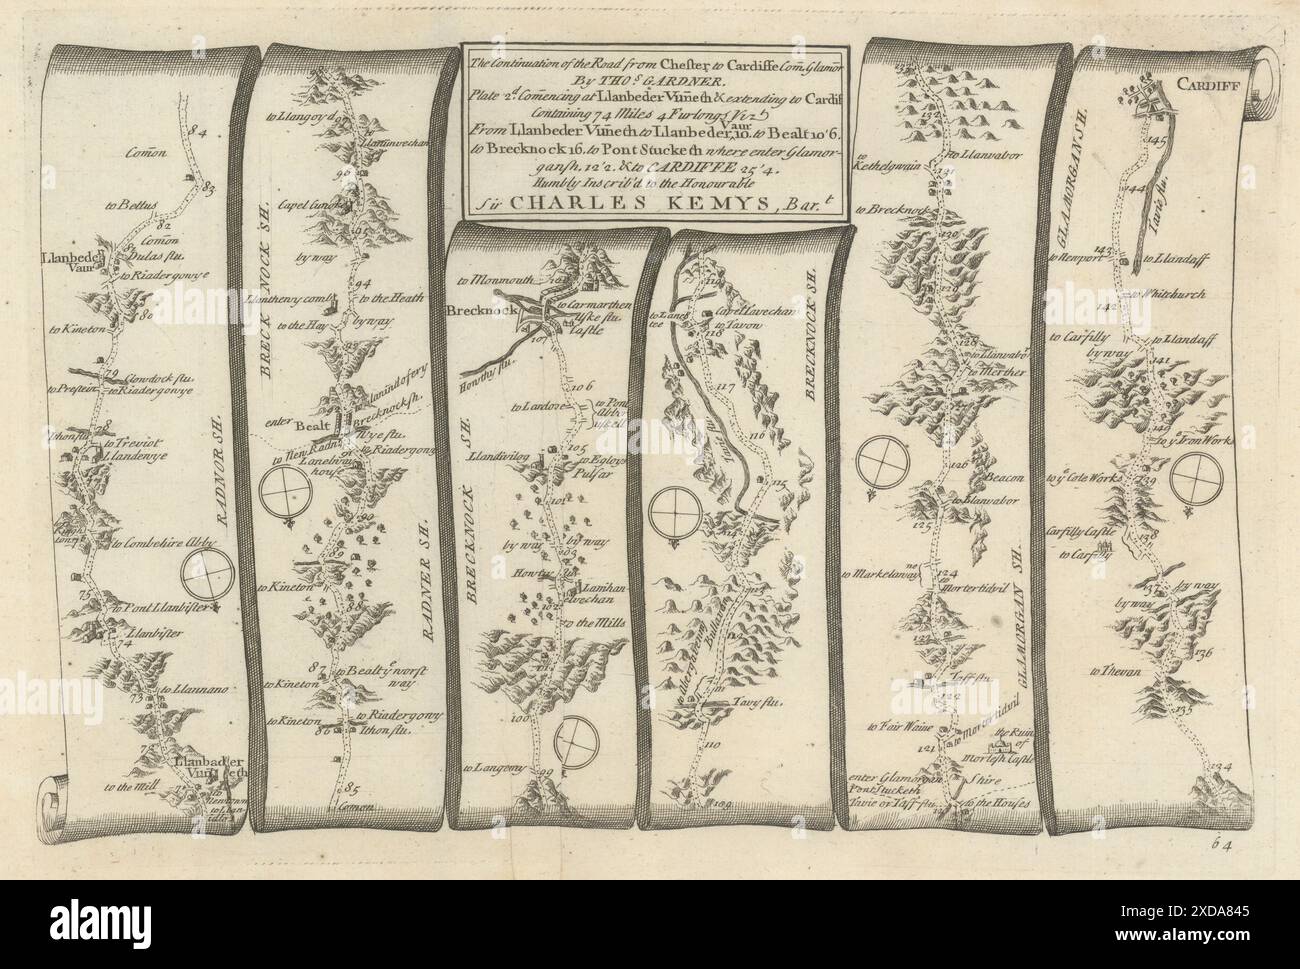 The Continuation of the Road from Chester to Cardiffe Com Glamor
By THOs. GARDNER.
Plate 2d. Comencing at Llanbeder Vuneth & extending to Cardif
Containing 74 Miles 4 Furlongs Vizt.
From Llanbeder Vuneth to Llanbeder Vaur 10. to Bealt 10'6.
to Brecknock 16. to Pont Stucketh where enter Glamor-
gansh. 12'2. & to CARDIFFE 25'4.
Humbly Inscrib'd to the Honourable
Sir CHARLES KEMYS, Bar.t
84
Comon
83
to Bettus
82
Comon
81
Llanbeden
Vaur
Dulas flu.
to Riadergowye
80
to Kineton
79
Clowdock flu.
to Prestein
to Riadergowye
RADNOR SH.
78
Ithon flu
to Treviot
Llandewye
to Combehire Abby
75
to Pont Llanbister
Llanbister
74
to Llannano
73
72
Llanbadder
Vuneth
to the Mill
to Llangoyd
97
to
Llanunvechan
96
Capel
95
by way
BRECKNOCK SH.
94
Llanthenry comb
to the Heath
to the Hay
by way
93
Llanindofery
enter
Bealt
Brecknocksh.
Wye flu
to New Radn
to Riadergowy
Lanelway
house
91
90
89
RADNER SH.
to Kineton
88
87
to Bealt ye worst
way
to Kineton
to Kineton
to Riadergowy
86
Ithon flu.
85
Comon
to Monmouth
108
Brecknock
to Carmarthen
Uske flu
Castle
107
Howthy flu.
106
to Lardore
to Pont
BRECKNOCK SH.
105
Llandivilog
to Egloys
Pulsar
by way
by way
103
Howty flu
102
Lanihan-
elvechan
to the Mills
101
100
to Langemy
99
119
to Lanel
tee
Capel Lavechan
to Tavon
118
BREIKNOCK SH.
117
116
Tavy flu
115
114
113
112
to Aberhavering
111
Tavy flu.
110
109
to Llanvabor
to
Kethelgwain
131
to Brecknock
130
129
128
to Llanvabor
to Merther
126
Beacon
to Llanvabor
125
GLAMORGAN SH.
124
to Markelaway
to
Mortertidvil
123
Taff flu
122
to Fair Waine
121
to Morartidvil
the Ruin
of
Morlesh Castle
enter Glamorgan Shire
Pont Stucketh
Tavie or Taff flu
to the Houses
120
CARDIFF
145
GLAMORGANSH.
144
Tavie flu.
143
to Newport
to Llandaff
to Whitchurch
142
to Carfilly
to Llandaff
by way
141
140
to ye Iron Works
to ye Cole Works
139
Carfilly Castle
138
to Carfilly
137
by way
by way
136
to Thevan
135
134
64
alamy
Image ID: 2XDA845
www.alamy.com